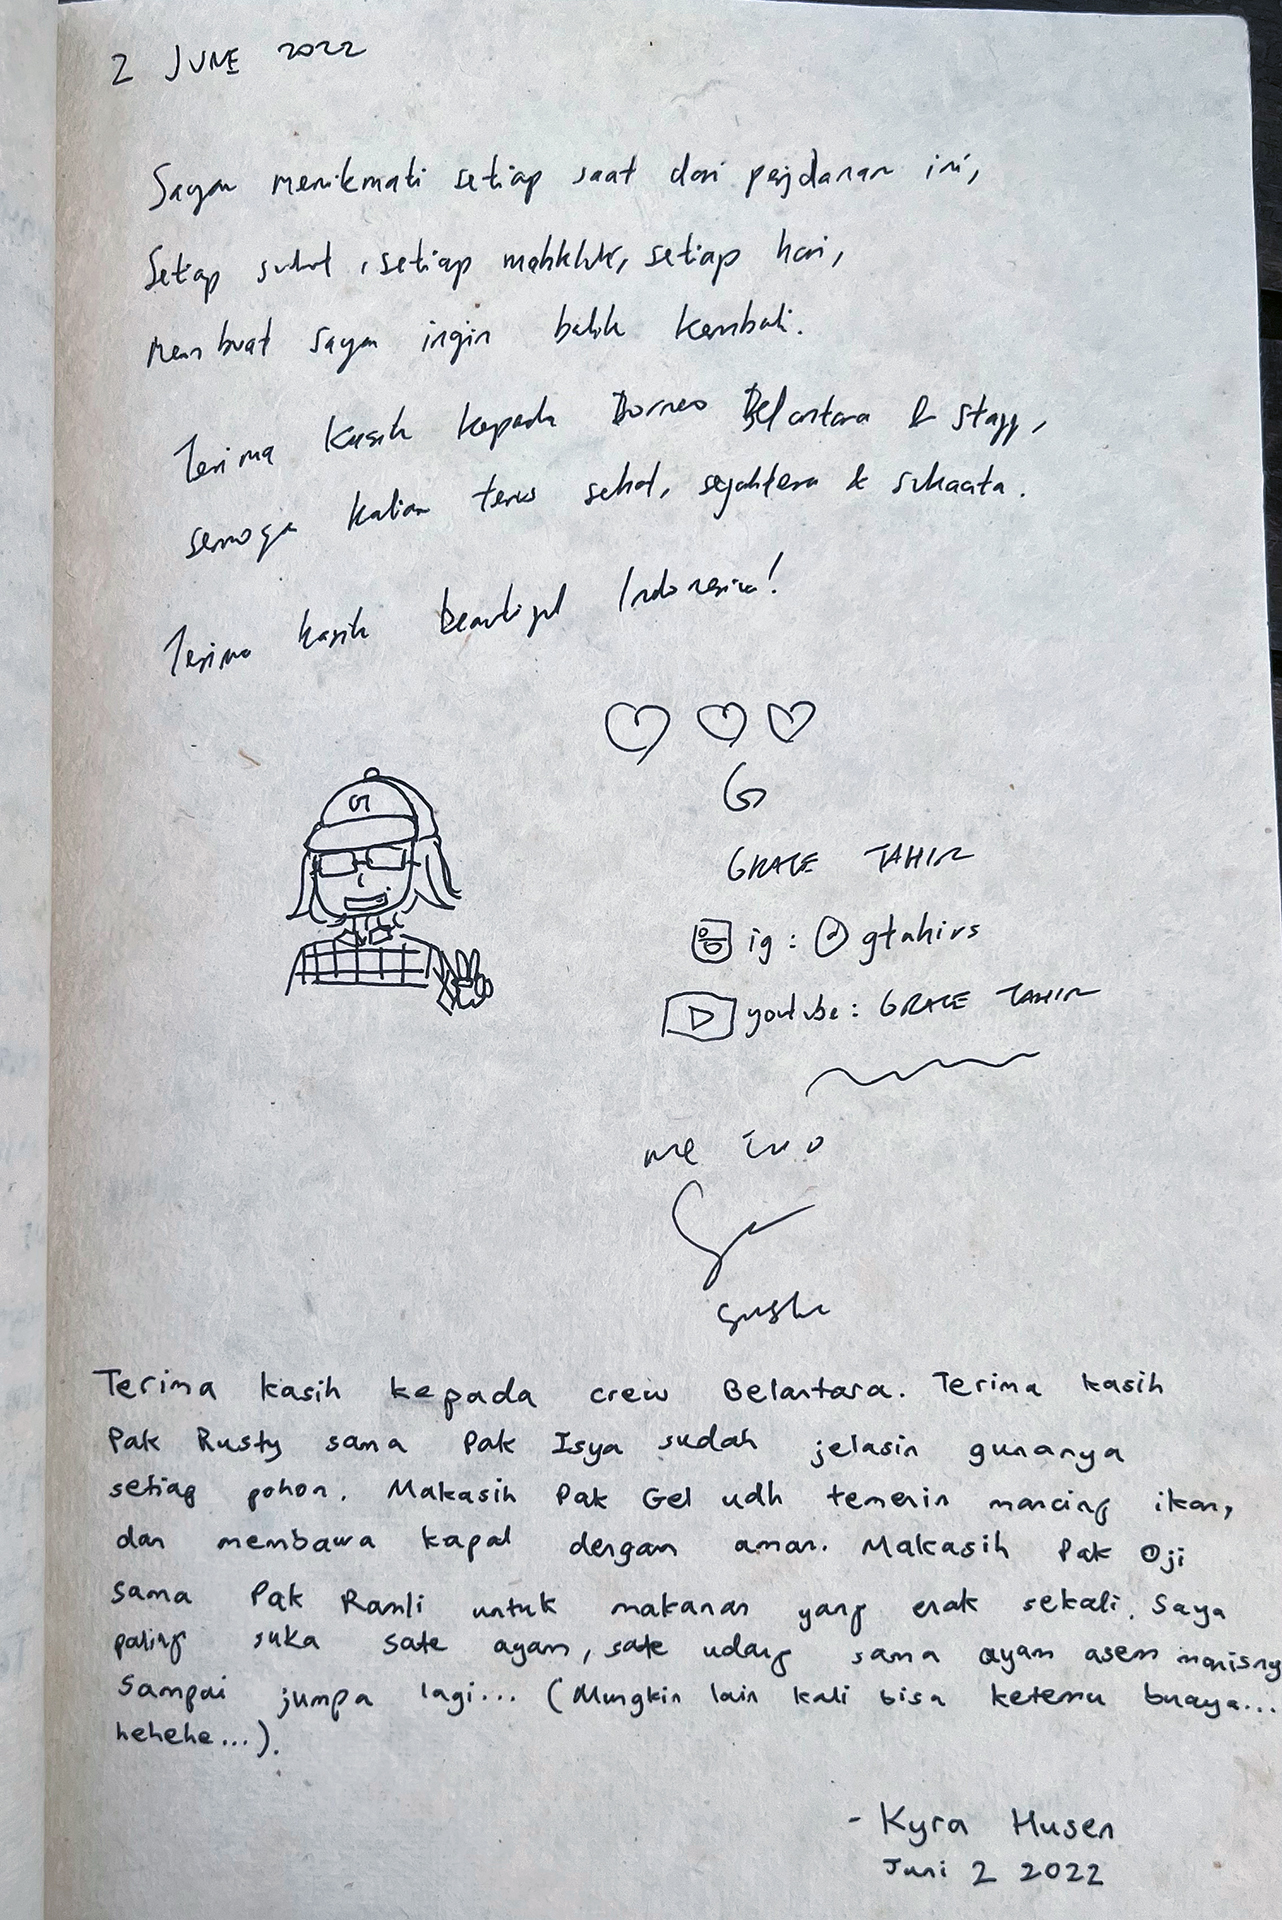 2 JUNE 2022
Saya menikmati setiap saat dari perjalanan ini,
Setiap sudut, setiap mahkluk, setiap hari,
membuat saya ingin balik kembali.
Terima kasih kepada Borneo Belantara & staff,
semoga kalian terus sehat, sejahtera & sukacita.
Terima kasih beautiful Indonesia!
G
G
GRACE TAHIR
ig: @gtahirs
youtube: GRACE TAHIR
me too
Terima kasih kepada crew Belantara. Terima kasih
Pak Rusty sama Pak Isya sudah jelasin gunanya
setiap pohon. Makasih Pak Gel udh temenin mancing ikan,
dan membawa kapal dengan aman. Makasih Pak Oji
sama Pak Ramli untuk makanan yang enak sekali. Saya
paling suka sate ayam, sate udang sama ayam asem manisny
Sampai jumpa lagi... (Mungkin lain kali bisa ketemu buaya...
hehehe...).
- Kyra Husen
Juni 2 2022